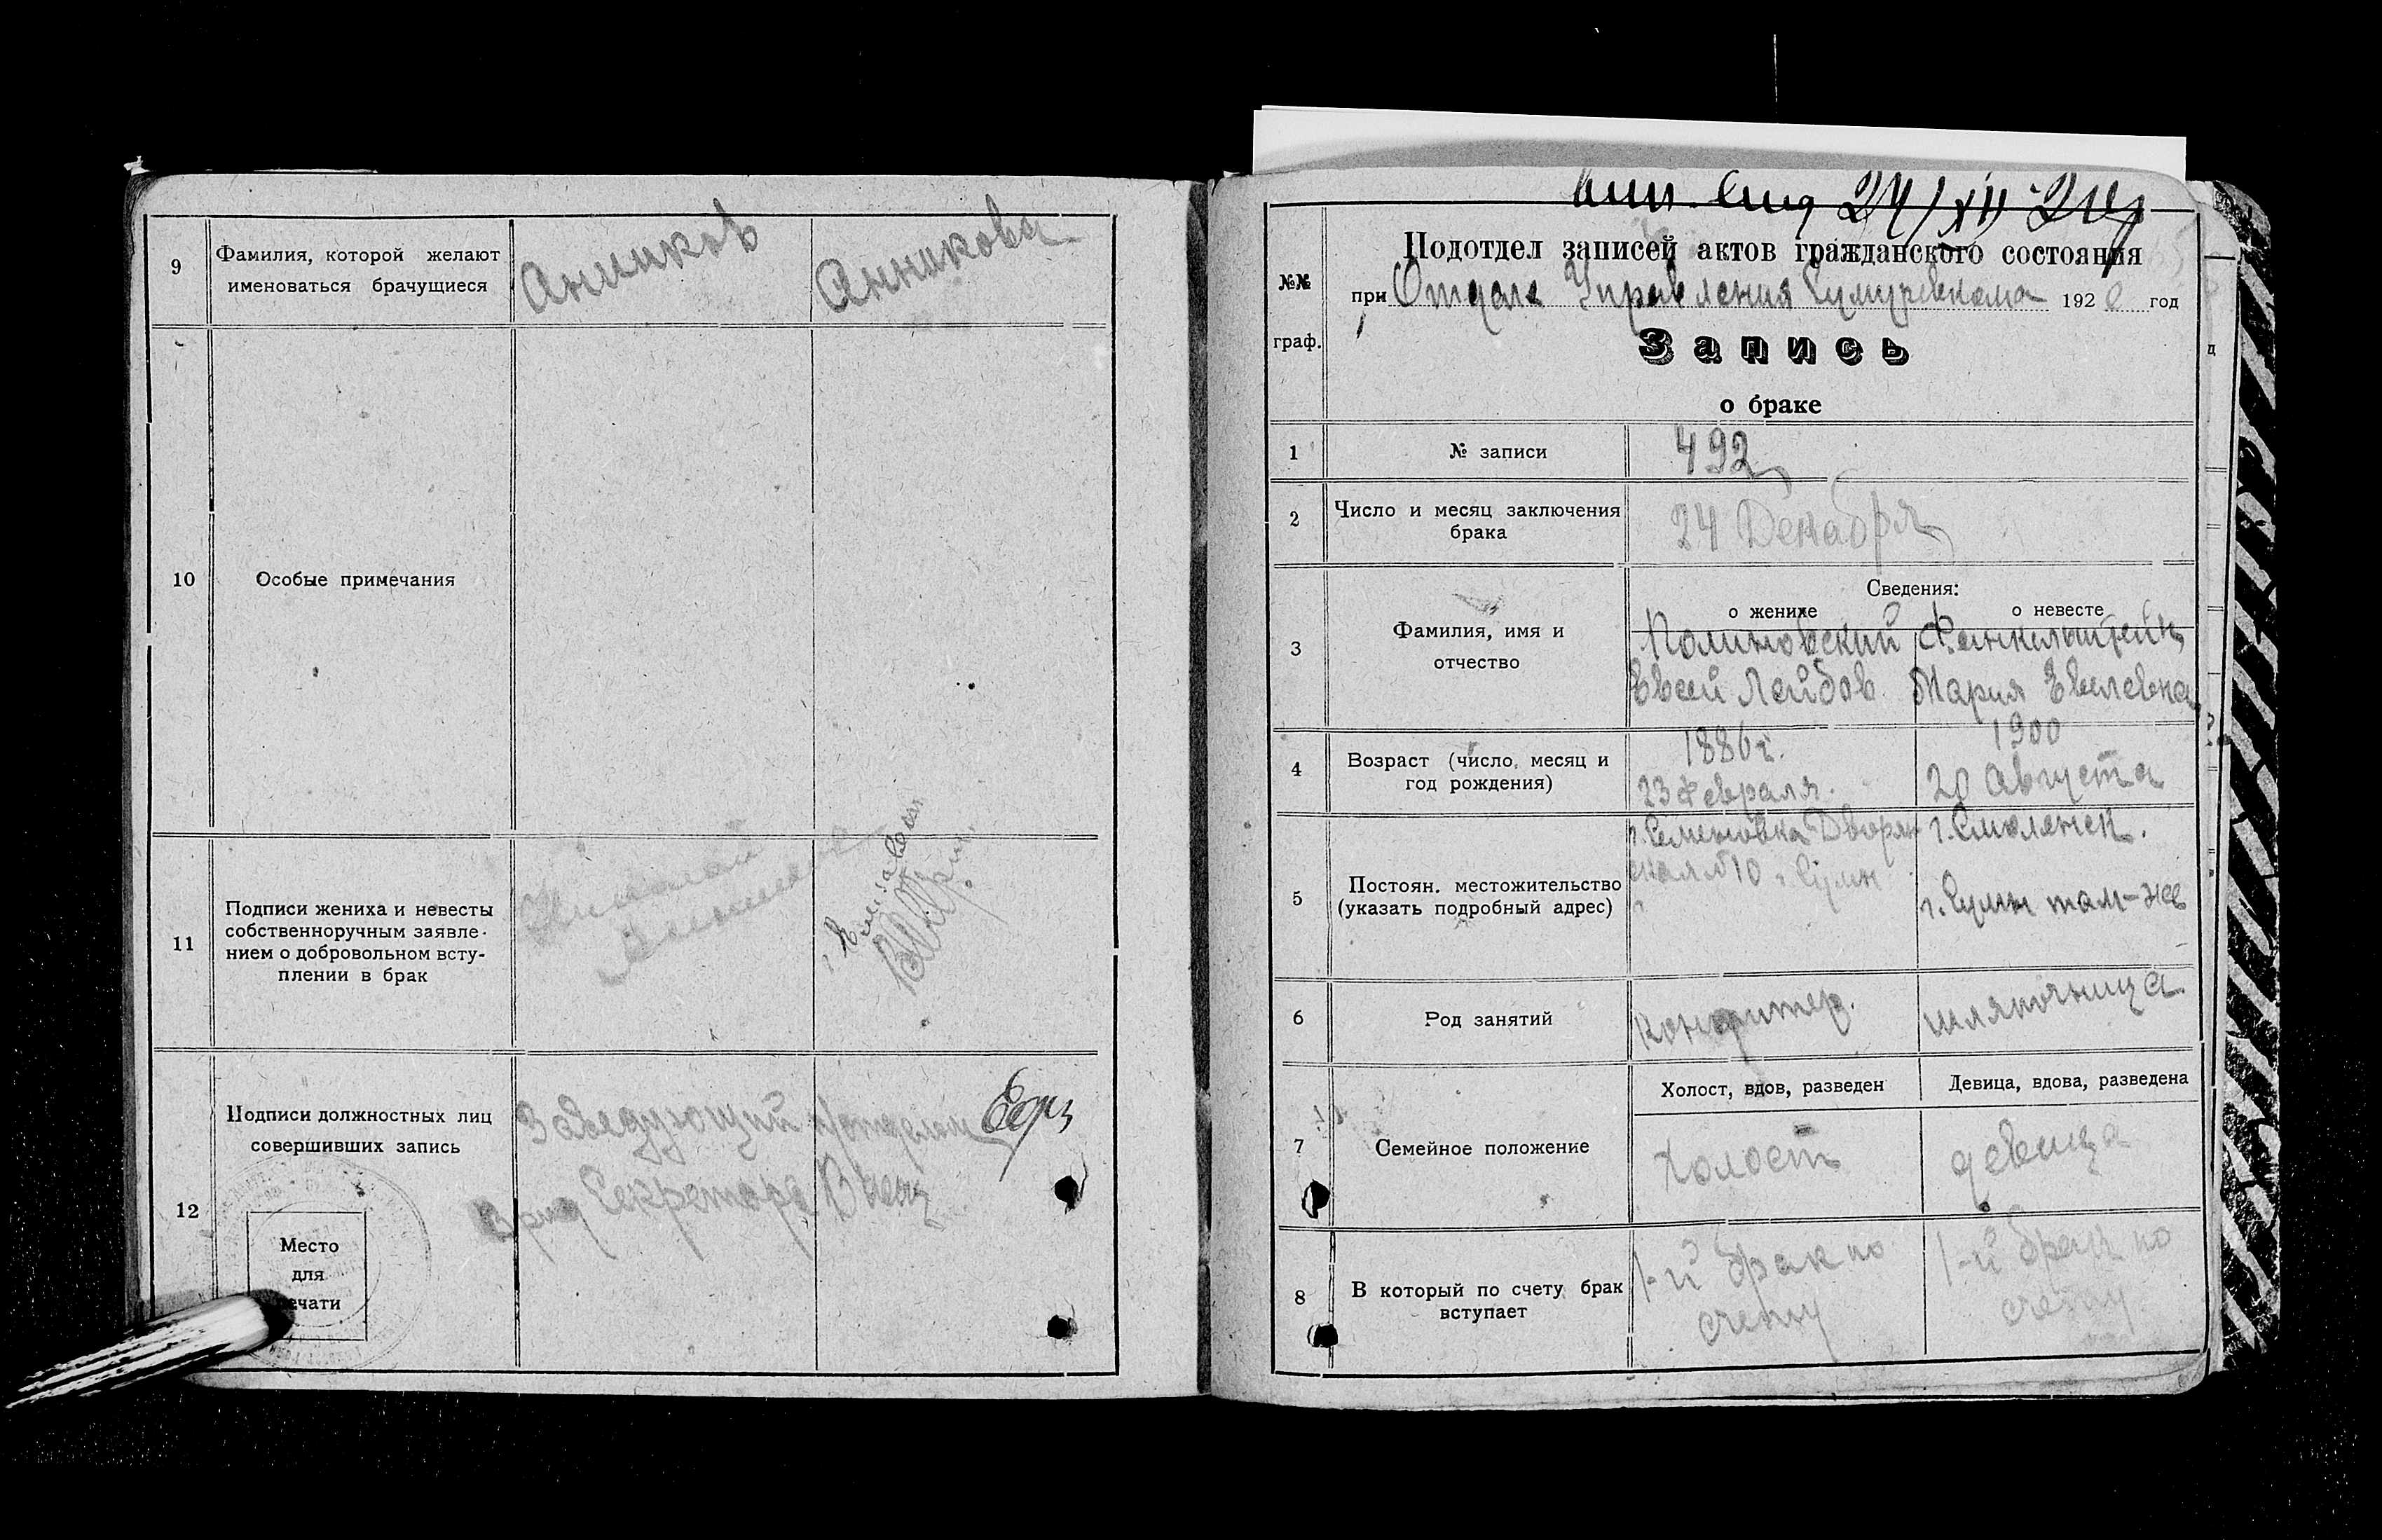 9
Фамилия, которой желают
именоваться брачущиеся
Анников
Анникова
10
Особые примечания
11
Подписи жениха и невесты
собственноручным заявле-
нием о добровольном всту-
плении в брак
12
Подписи должностных лиц
совершивших запись
Заведующий п/отделом
Врид Секретаря
Место
для
печати
24/XII 20 г
№№
граф.
Подотдел записей актов гражданского состояния
при Отделе Управления Сумуревкома 1920 год
Запись
о браке
1
№ записи
492
2
Число и месяц заключения
брака
24 Декабря
3
Фамилия, имя и
отчество
Сведения:
о женихе
о невесте
Полиновский
Евсей Лейбов
Финкельштейн
Мария Евелевна
4
Возраст (число, месяц и
год рождения)
1886 г.
23 февраля.
1900
20 Августа
5
Постоян. местожительство
(указать подробный адрес)
г. Семеновка Дворян
ская №10 г. Сумы
г. Смоленск.
г. Сумы там-же
6
Род занятий
кондитер.
шляпочница
7
Семейное положение
Холост, вдов, разведен
Девица, вдова, разведена
Холост
девица
8
В который по счету брак
вступает
1-й брак по
счету
1-й брак по
счету